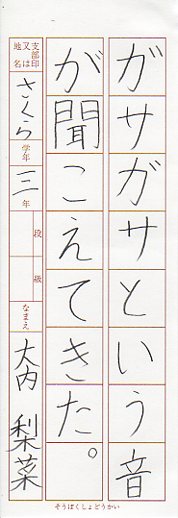 ガサガサという音
が聞こえてきた。
支部印又は地名 さくら 学年 三年 段 級 なまえ 大内 梨菜
そうばくしょどうかい